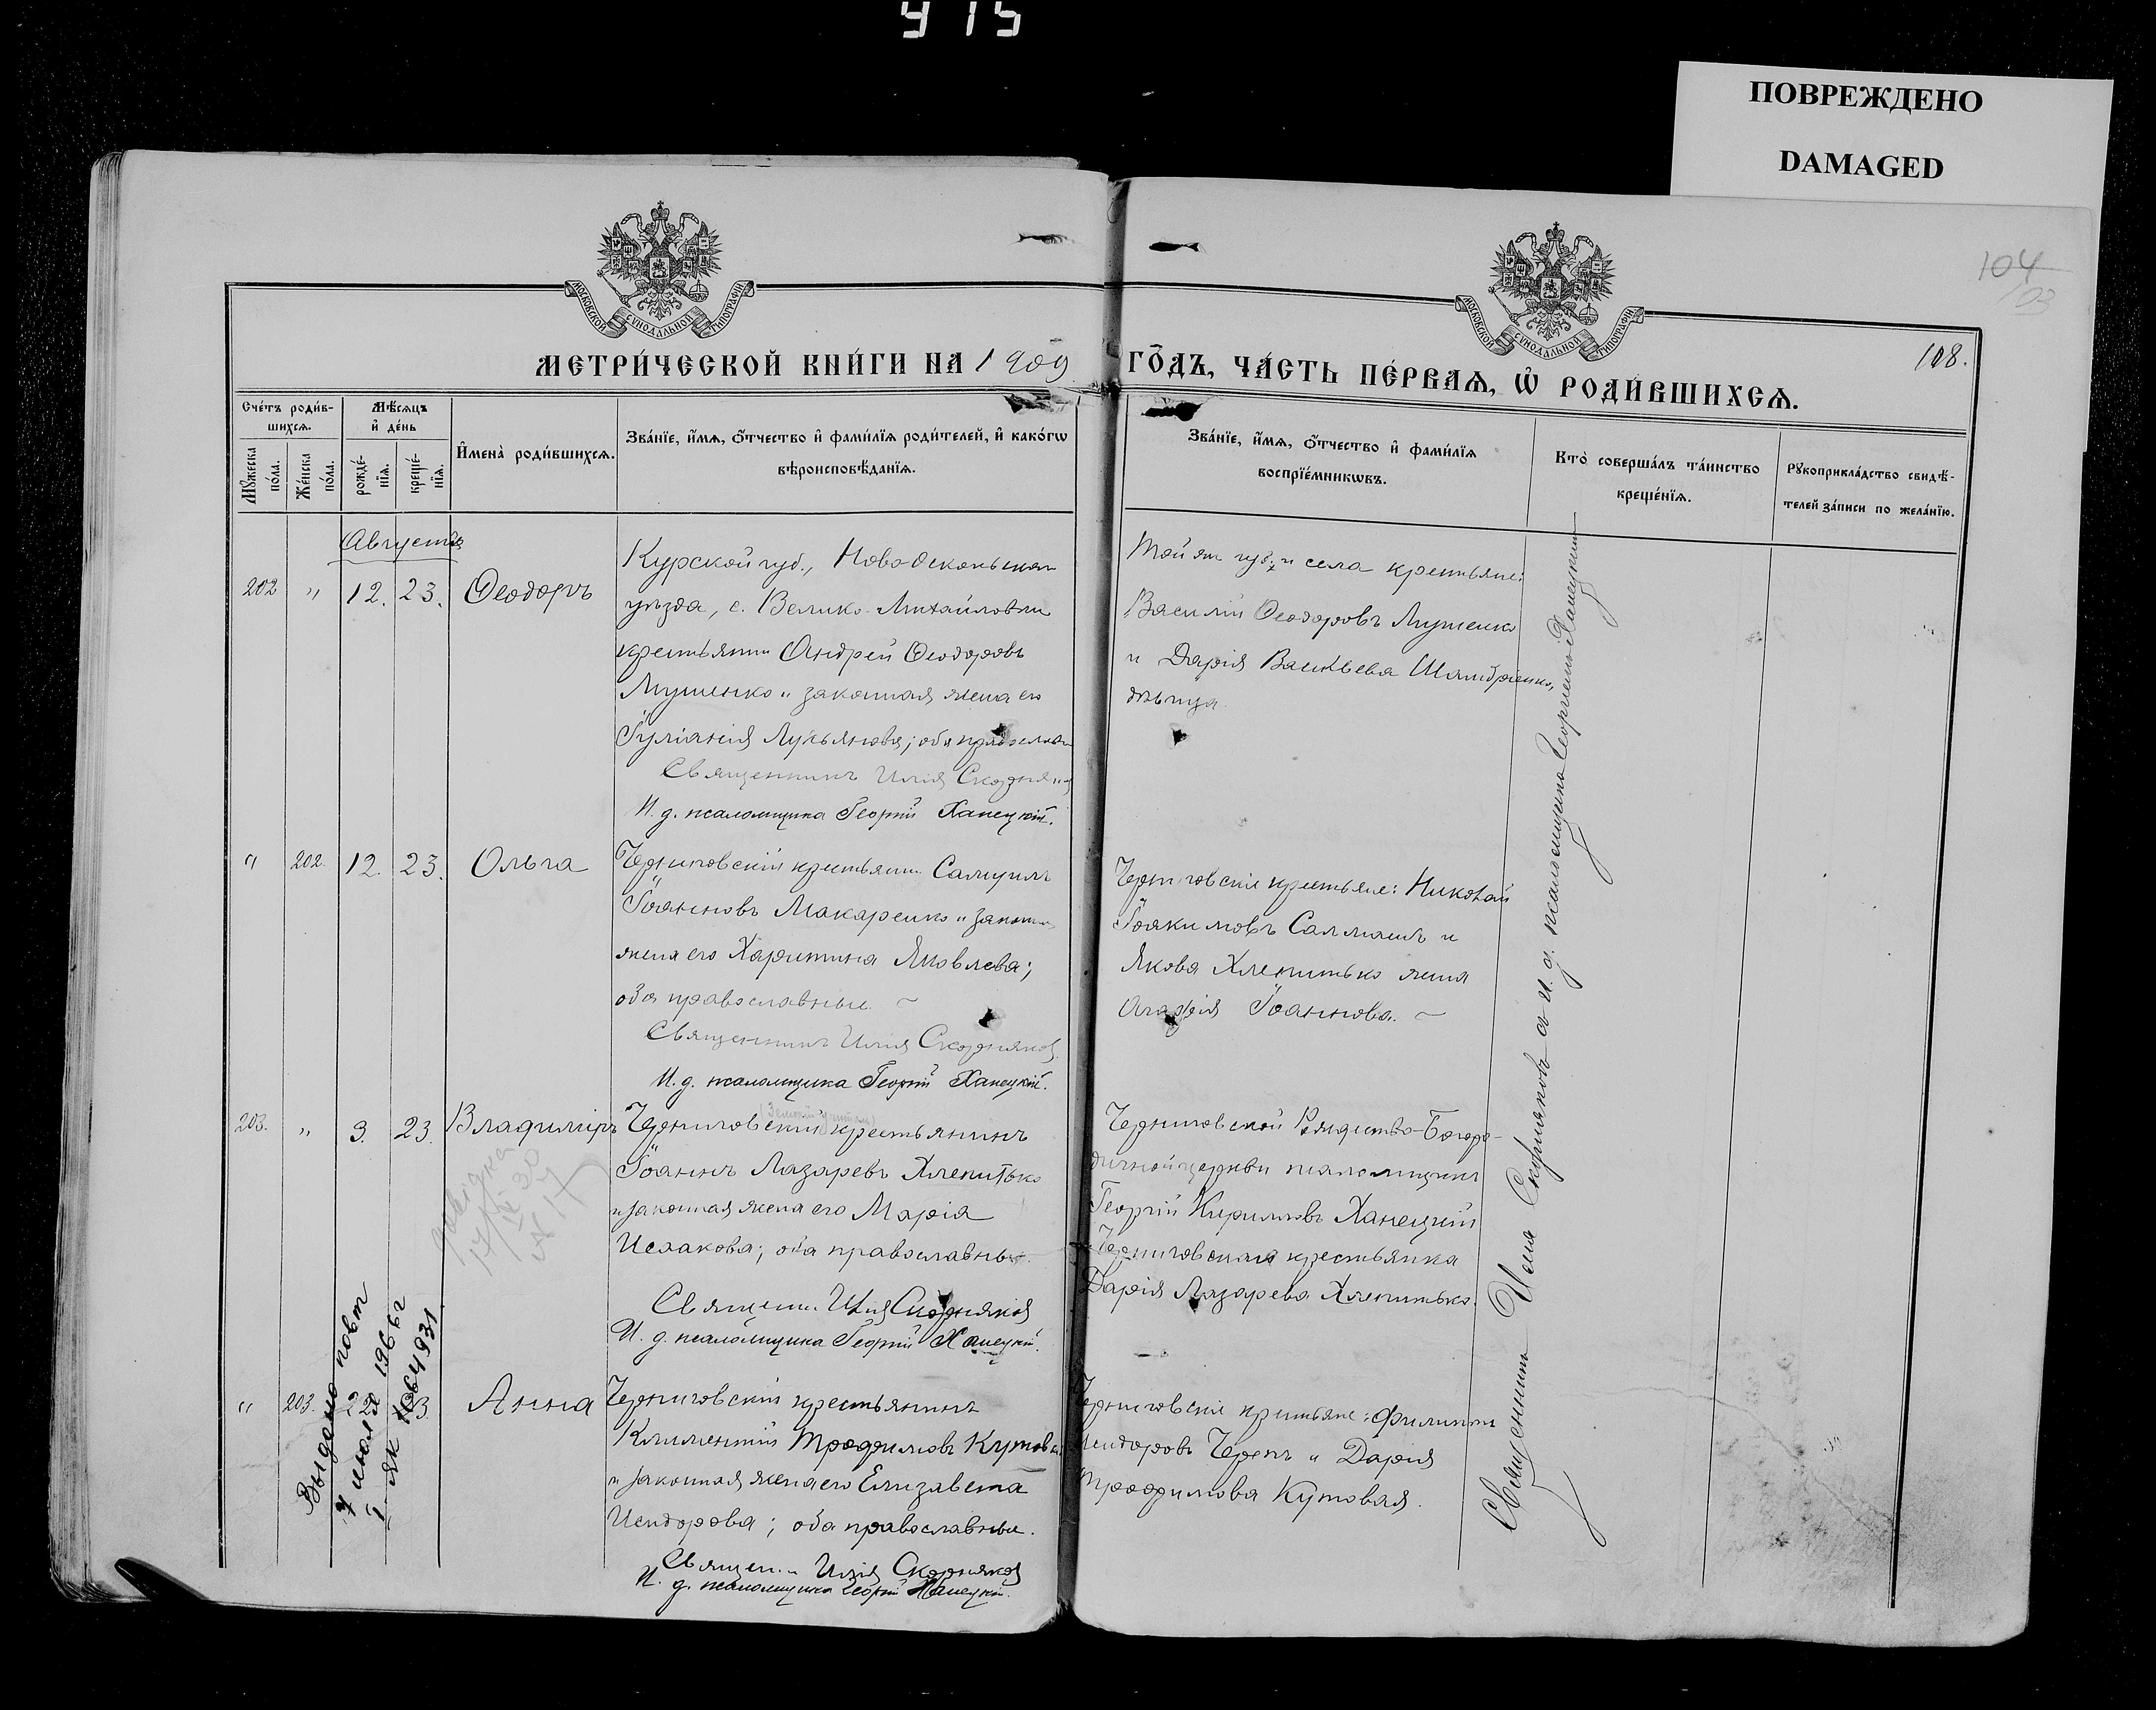 915
ПОВРЕЖДЕНО
DAMAGED
104
103
МОСКОВСКОЙ СѴНОДАЛЬНОЙ ТИПОГРАФІИ
МОСКОВСКОЙ СѴНОДАЛЬНОЙ ТИПОГРАФІИ
МЕТРИ́ЧЕСКОЙ КНИ́ГИ НА 1909
ГО́ДЪ, ЧА́СТЬ ПЕ́РВАѦ, Ѡ҆ РОДИ́ВШИХСѦ.
108.
Сче́тъ роди́в-
шихсѧ.
Мꙋ́жеска по́ла.
Же́нска по́ла.
Мѣ́сѧцъ
и҆ де́нь
рожде́-
нїѧ.
креще́-
нїѧ.
И҆мена̀ роди́вшихсѧ.
Зва́нїе, и҆́мѧ, ѻ҆́тчество и҆ фами́лїѧ роди́телей, и҆ како́гѡ
вѣроисповѣ́данїѧ.
Зва́нїе, и҆́мѧ, ѻ҆́тчество и҆ фами́лїѧ
воспрїе́мникѡвъ.
Кто̀ соверша́лъ та́инство
креще́нїѧ.
Рꙋкоприкла́дство свидѣ́-
телей за́писи по жела́нїю.
Августъ
202 " 12. 23. Ѳеодоръ
Курской губ., Ново-Оскольскаго
уѣзда, с. Велико-Михайловки
крестьянинъ Андрей Ѳеодоровъ
и законная жена его
Іуліанія Лукьянова; оба православн
Священникъ Илія Скорняковъ
И. д. псаломщика Георгій Ханецкій.
Той же губ. и села крестьяне:
Василій Ѳеодоровъ
и Дарія Васильева
дѣвица.
" 202. 12. 23. Ольга
Черниговскій крестьянин Самуилъ
Іоанновъ Макаренко и законная
жена его Харитина Яковлева;
оба православные. ~
Священникъ Илія Скорняковъ
И. д. псаломщика Георгій Ханецкій.
Черниговскіе крестьяне: Николай
Іоакимовъ и
Якова Хлепитько жена
Агафія Іоаннова. ~
203. " 9. 23. Владиміръ
Черниговскій крестьянинъ
Іоаннъ Лазаревъ Хлепитько
и законная жена его Марія
Исаакова; оба православные.
Священ. Илія Скорняковъ
И. д. псаломщика Георгій Ханецкій.
Черниговской Рождество-Богоро-
дичной церкви псаломщикъ
Георгій Кирилловъ Ханецкій
Черниговская крестьянка
Дарія Лазарева Хлепитько.
" 203. 22. 23. Анна
Черниговскій крестьянинъ
Климентій Трофимовъ Кутовой
и законная жена его Елизавета
Исидорова; оба православные.
Священ. Илія Скорняковъ
И. д. псаломщика Георгій Ханецкій.
Черниговскіе крестьяне: Филиппъ
Исидоровъ и Дарія
Трофимова Кутовая.
Выдано повт
196
Священникъ Илія Скорняковъ и. д. псаломщика Георгій Ханецкій